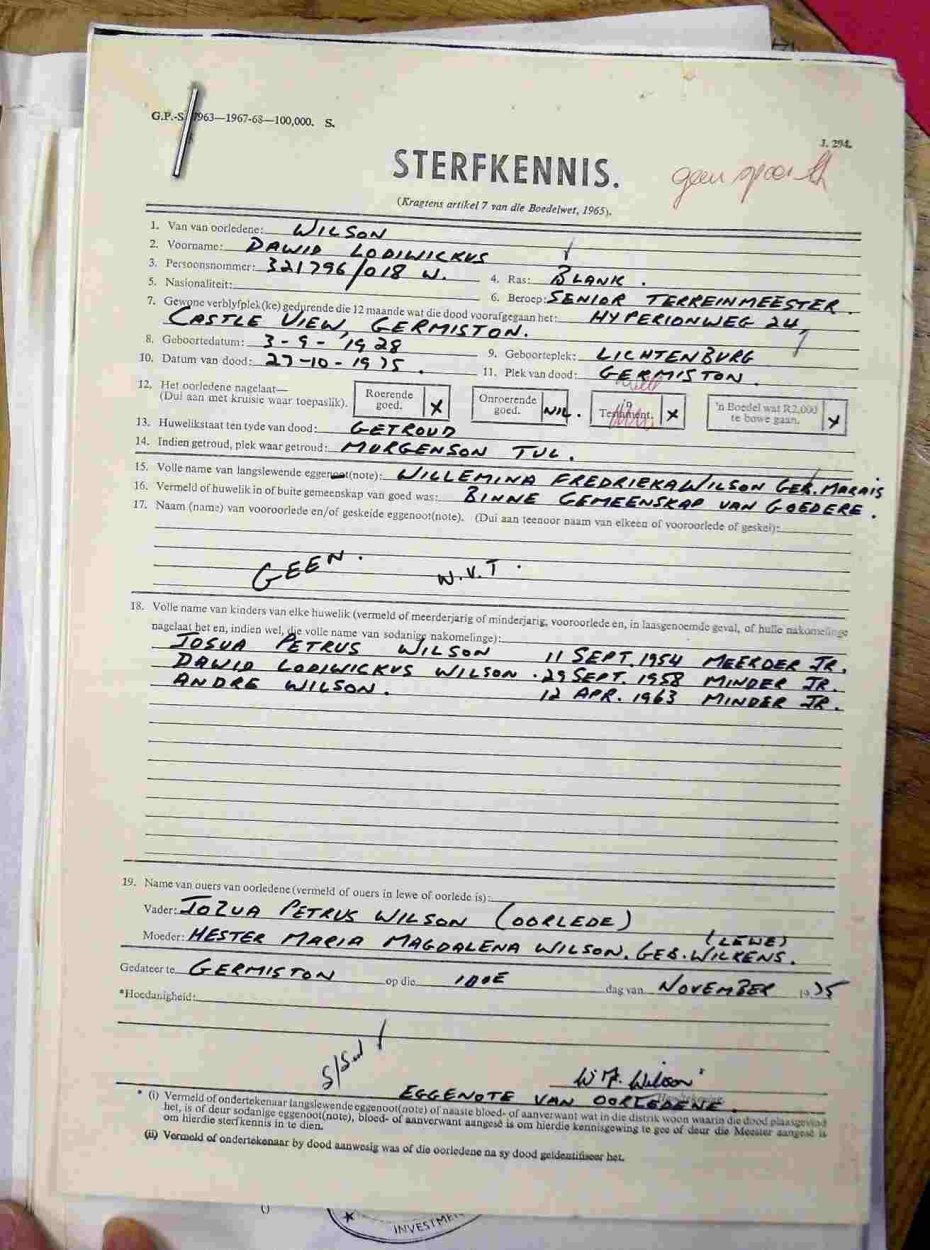 G.P.-S. 1963—1967-68—100,000. S.
J. 294.
STERFKENNIS.
geen
(Kragtens artikel 7 van die Boedelwet, 1965).
1. Van van oorledene: WILSON
2. Voorname: DAWID LODIWICKUS
3. Persoonsnommer: 321796/018 W. 4. Ras: BLANK.
5. Nasionaliteit: 6. Beroep: SENIOR TERREINMEESTER.
7. Gewone verblyfplek(ke) gedurende die 12 maande wat die dood voorafgegaan het: HYPERIONWEG 24,
CASTLE VIEW, GERMISTON.
8. Geboortedatum: 3-9-1928 9. Geboorteplek: LICHTENBURG
10. Datum van dood: 27-10-1975. 11. Plek van dood: GERMISTON.
12. Het oorledene nagelaat— Roerende goed. X Onroerende goed. NIL. Testament. X 'n Boedel wat R2,000 te bowe gaan. X
(Dui aan met kruisie waar toepaslik).
13. Huwelikstaat ten tyde van dood: GETROUD
14. Indien getroud, plek waar getroud: MORGENSON TVL.
15. Volle name van langslewende eggenoot(note): WILLEMINA FREDRIEKA WILSON GEB. MARAIS
16. Vermeld of huwelik in of buite gemeenskap van goed was: BINNE GEMEENSKAP VAN GOEDERE.
17. Naam (name) van vooroorlede en/of geskeide eggenoot(note). (Dui aan teenoor naam van elkeen of vooroorlede of geskei):
GEEN. N.V.T.
18. Volle name van kinders van elke huwelik (vermeld of meerderjarig of minderjarig, vooroorlede en, in laasgenoemde geval, of hulle nakomelinge
nagelaat het en, indien wel, die volle name van sodanige nakomelinge):
JOSUA PETRUS WILSON 11 SEPT. 1954 MEERDER JR.
DAWID LODIWICKUS WILSON. 29 SEPT. 1958 MINDER JR.
ANDRE WILSON. 12 APR. 1963 MINDER JR.
19. Name van ouers van oorledene (vermeld of ouers in lewe of oorlede is):
Vader: JOZUA PETRUS WILSON (OORLEDE)
(LEWE)
Moeder: HESTER MARIA MAGDALENA WILSON. GEB. WILKENS.
Gedateer te GERMISTON op die 10DE dag van NOVEMBER 1975
*Hoedanigheid:
W F. Wilson
EGGENOTE VAN OORLEDENE.
* (i) Vermeld of ondertekenaar langslewende eggenoot(note) of naaste bloed- of aanverwant wat in die distrik woon waarin die dood plaasgevind
het, is of deur sodanige eggenoot(note), bloed- of aanverwant aangesê is om hierdie kennisgewing te gee of deur die Meester aangesê is
om hierdie sterfkennis in te dien.
(ii) Vermeld of ondertekenaar by dood aanwesig was of die oorledene na sy dood geïdentifiseer het.